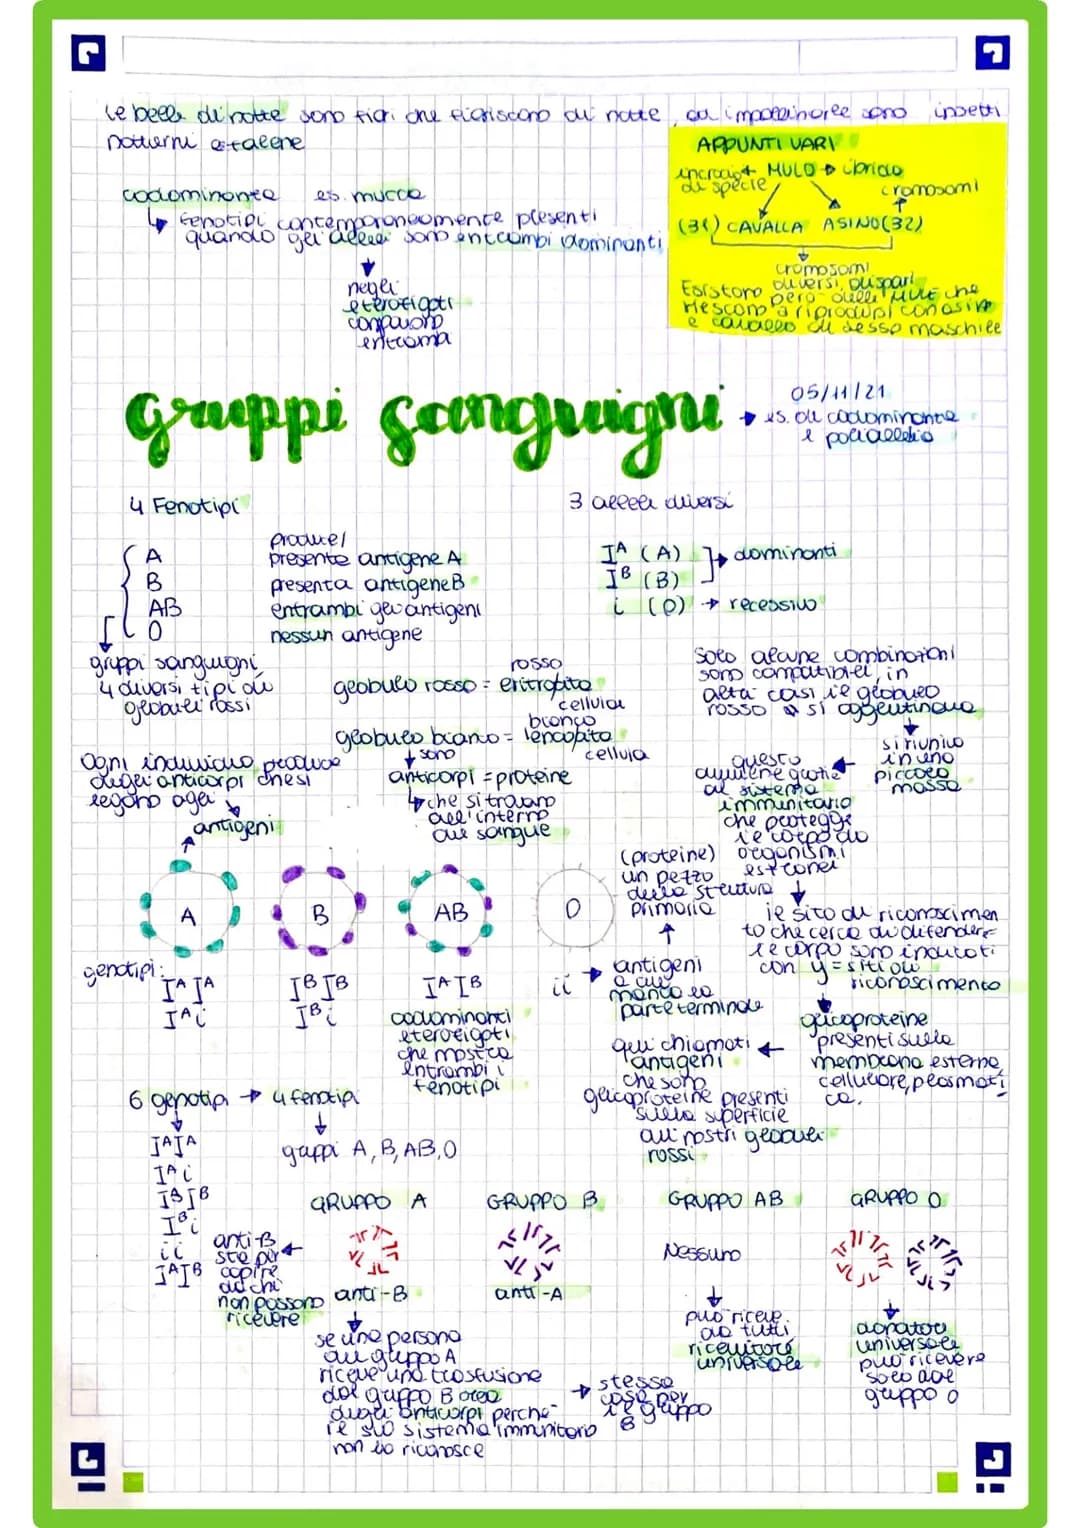 le belle di notte sono fiori che fioriscono di notte, ad impollinarle sono insetti
notturni e falene
APPUNTI VARI
incrocio
di specie
MULO → ibrido
cromosomi
(31) CAVALLA ASINO (32)
cromosomi
diversi, dispari
Esistono però delle MULE che
riescono a riprodursi con asino
e cavallo di sesso maschile
codominante es. mucca
↳ fenotipi contemporaneamente presenti
quando gli alleli sono entrambi dominanti
↓
negli
eterozigoti
compaiono
entrambi
gruppi sanguigni
05/11/21
→ es. di codominante
e poliallelia
4 Fenotipi
3 alleli diversi
produce/
A presente antigene A
B presenta antigene B
AB entrambi gli antigeni
O nessun antigene
Iᴬ (A)
Iᴮ (B)
→ dominanti
i (O) → recessivo
gruppi sanguigni
4 diversi tipi di
globuli rossi
rosso
globulo rosso = eritrocita
cellula
bianco
globulo bianco = leucocita
cellula
↓ sono
anticorpi = proteine
↳ che si trovano
all'interno
del sangue
Solo alcune combinazioni
sono compatibili, in
altri casi il globulo
rosso si agglutinava
si riunivo
in uno
piccolo
massa
Ogni individuo produce
degli anticorpi che si
legano agli
antigeni
questo
avviene grazie
al sistema
immunitario
che protegge
il corpo da
organismi
estranei
(proteine)
un pezzo
della struttura
primaria
A B AB O
il sito di riconoscimen
to che cerca di difendere
il corpo sono indicati
con y = siti di
riconoscimento
antigeni
a cui
manca la
parte terminale
genotipi:
Iᴬ Iᴬ
Iᴬ i
Iᴮ Iᴮ
Iᴮ i
Iᴬ Iᴮ
ii
codominanti
eterozigoti
che mostra
entrambi i
fenotipi
glicoproteine
presenti sulla
membrana esterna
cellulare, plasmati
ca.
qui chiamati
antigeni
che sono
glicoproteine presenti
sulla superficie
dei nostri globuli
rossi
6 genotipi → 4 fenotipi
↓ ↓
gruppi A, B, AB, O
IᴬIᴬ
Iᴬi
IᴮIᴮ
Iᴮi
ii
IᴬIᴮ
GRUPPO A GRUPPO B GRUPPO AB GRUPPO O
anti-B
sta per
capire
da chi
non possono
ricevere
anti-B
anti-A
Nessuno
se una persona
del gruppo A
riceve una trasfusione
dal gruppo B crea
degli anticorpi perché
il suo sistema immunitario
non lo riconosce
→ stessa
cosa per
il gruppo
B
può riceve.
da tutti
ricevitore
universale
donatore
universale
può ricevere
solo dal
gruppo O